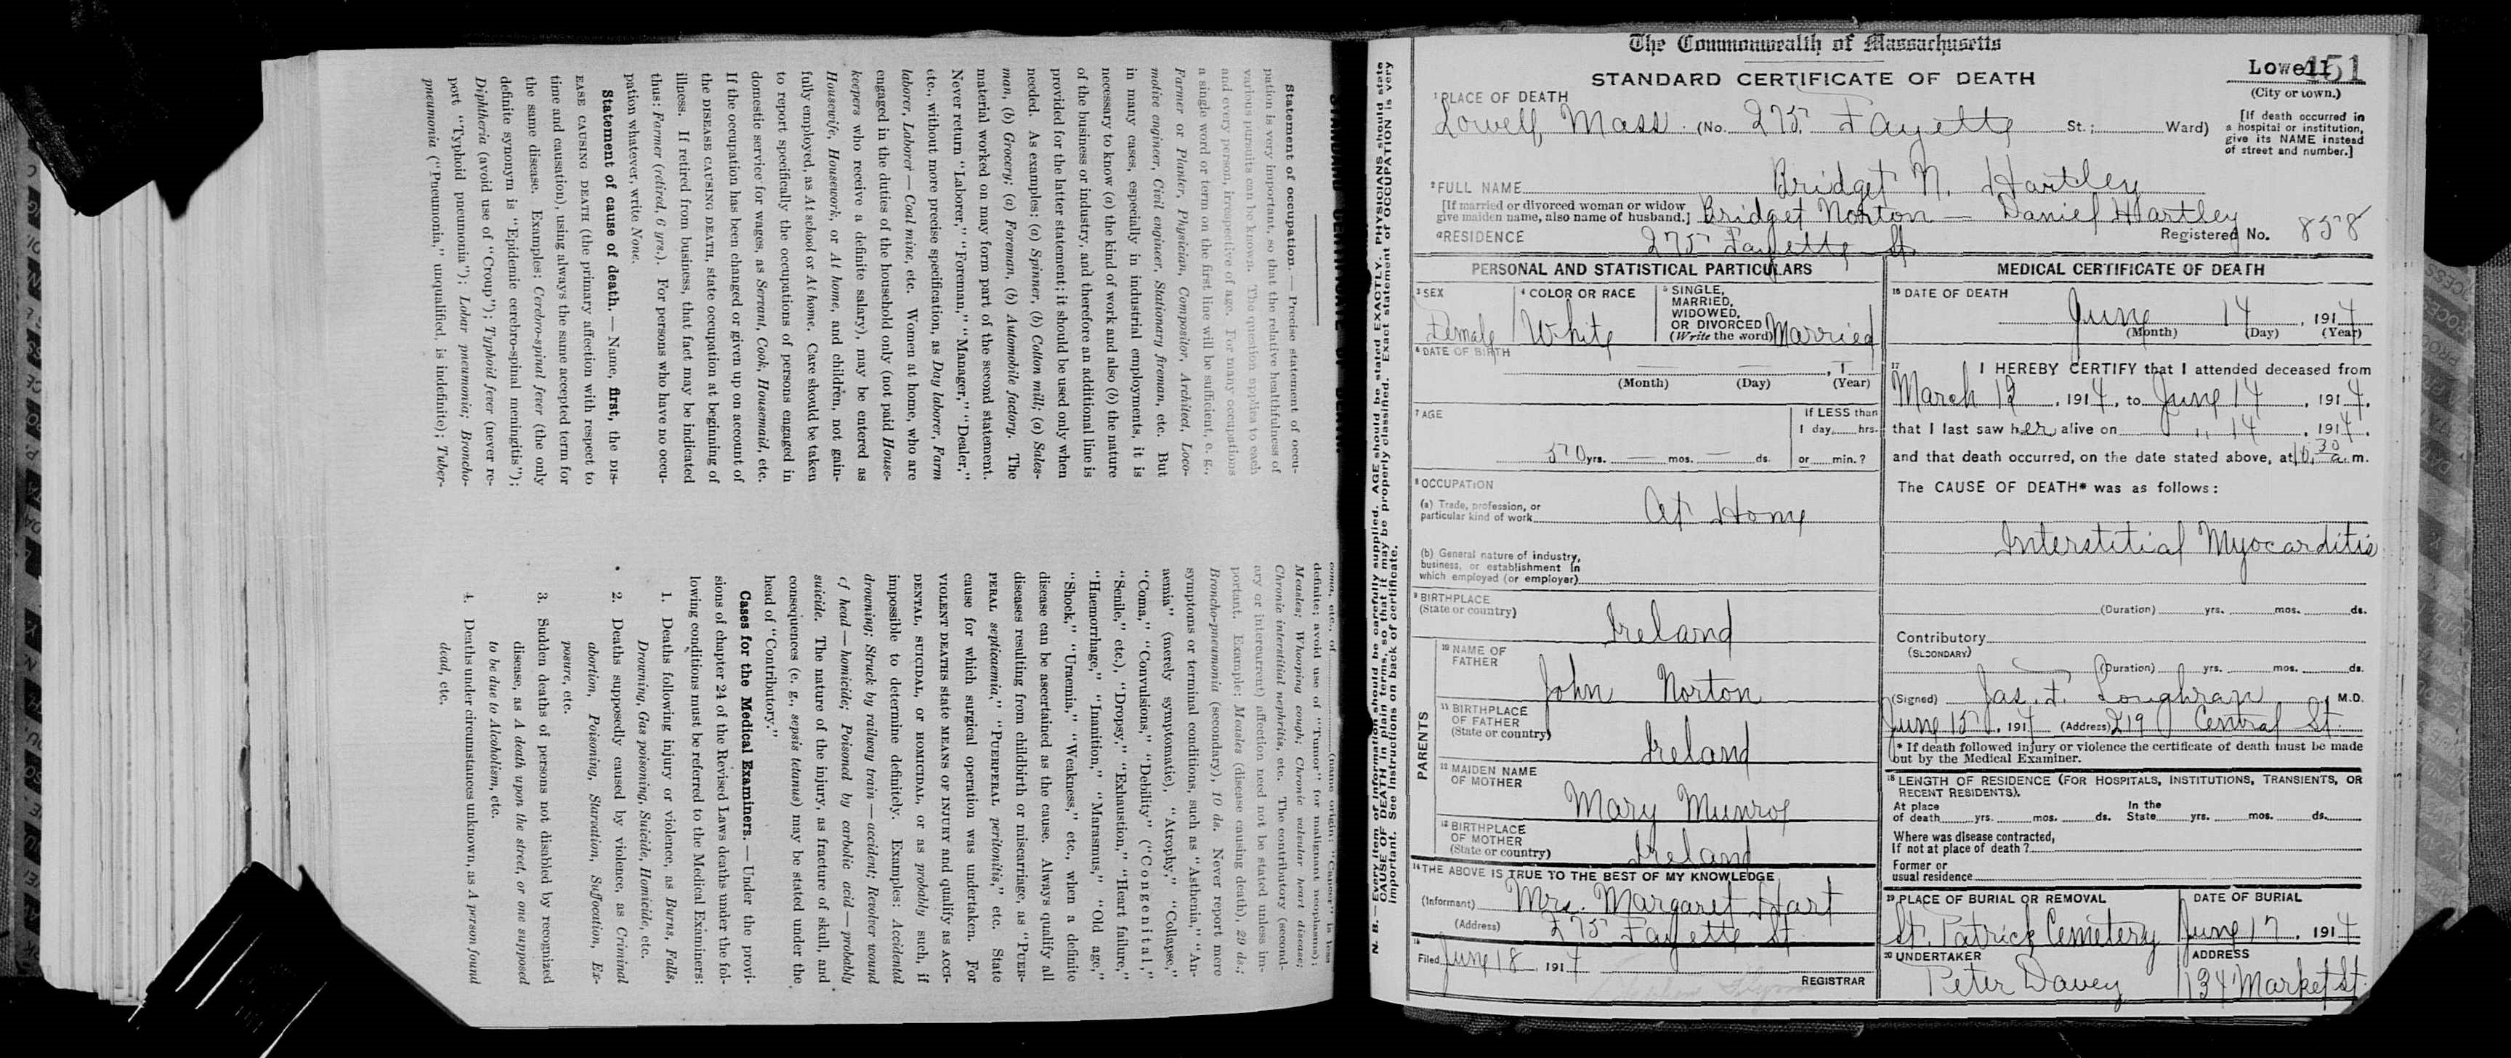 STANDARD CERTIFICATE OF DEATH.
Statement of occupation. — Precise statement of occu-
pation is very important, so that the relative healthfulness of
various pursuits can be known. The question applies to each
and every person, irrespective of age. For many occupations
a single word or term on the first line will be sufficient, e. g.,
Farmer or Planter, Physician, Compositor, Architect, Loco-
motive engineer, Civil engineer, Stationary fireman, etc. But
in many cases, especially in industrial employments, it is
necessary to know (a) the kind of work and also (b) the nature
of the business or industry, and therefore an additional line is
provided for the latter statement; it should be used only when
needed. As examples: (a) Spinner, (b) Cotton mill; (a) Sales-
man, (b) Grocery; (a) Foreman, (b) Automobile factory. The
material worked on may form part of the second statement.
Never return "Laborer," "Foreman," "Manager," "Dealer,"
etc., without more precise specification, as Day laborer, Farm
laborer, Laborer — Coal mine, etc. Women at home, who are
engaged in the duties of the household only (not paid House-
keepers who receive a definite salary), may be entered as
Housewife, Housework, or At home, and children, not gain-
fully employed, as At school or At home. Care should be taken
to report specifically the occupations of persons engaged in
domestic service for wages, as Servant, Cook, Housemaid, etc.
If the occupation has been changed or given up on account of
the DISEASE CAUSING DEATH, state occupation at beginning of
illness. If retired from business, that fact may be indicated
thus: Farmer (retired, 6 yrs.). For persons who have no occu-
pation whatever, write None.
Statement of cause of death. — Name, first, the DIS-
EASE CAUSING DEATH (the primary affection with respect to
time and causation), using always the same accepted term for
the same disease. Examples: Cerebro-spinal fever (the only
definite synonym is "Epidemic cerebro-spinal meningitis");
Diphtheria (avoid use of "Croup"); Typhoid fever (never re-
port "Typhoid pneumonia"); Lobar pneumonia; Broncho-
pneumonia ("Pneumonia," unqualified, is indefinite); Tuber-
coma, etc., of (name origin: "Cancer" is less
definite; avoid use of "Tumor" for malignant neoplasms);
Measles; Whooping cough; Chronic valvular heart disease;
Chronic interstitial nephritis, etc. The contributory (second-
ary or intercurrent) affection need not be stated unless im-
portant. Example: Measles (disease causing death), 29 ds.;
Broncho-pneumonia (secondary), 10 ds. Never report mere
symptoms or terminal conditions, such as "Asthenia," "An-
aemia" (merely symptomatic), "Atrophy," "Collapse,"
"Coma," "Convulsions," "Debility" ("Congenital,"
"Senile," etc.), "Dropsy," "Exhaustion," "Heart failure,"
"Haemorrhage," "Inanition," "Marasmus," "Old age,"
"Shock," "Uraemia," "Weakness," etc., when a definite
disease can be ascertained as the cause. Always qualify all
diseases resulting from childbirth or miscarriage, as "PUER-
PERAL septicaemia," "PUERPERAL peritonitis," etc. State
cause for which surgical operation was undertaken. For
VIOLENT DEATHS state MEANS OF INJURY and qualify as ACCI-
DENTAL, SUICIDAL, or HOMICIDAL, or as probably such, if
impossible to determine definitely. Examples: Accidental
drowning; Struck by railway train — accident; Revolver wound
of head — homicide; Poisoned by carbolic acid — probably
suicide. The nature of the injury, as fracture of skull, and
consequences (e. g., sepsis tetanus) may be stated under the
head of "Contributory."
Cases for the Medical Examiners. — Under the provi-
sions of chapter 24 of the Revised Laws deaths under the fol-
lowing conditions must be referred to the Medical Examiners:
1. Deaths following injury or violence, as Burns, Falls,
Drowning, Gas poisoning, Suicide, Homicide, etc.
2. Deaths supposedly caused by violence, as Criminal
abortion, Poisoning, Starvation, Suffocation, Ex-
posure, etc.
3. Sudden deaths of persons not disabled by recognized
disease, as A death upon the street, or one supposed
to be due to Alcoholism, etc.
4. Deaths under circumstances unknown, as A person found
dead, etc.
N. B. — Every item of information should be carefully supplied. AGE should be stated EXACTLY. PHYSICIANS should state
CAUSE OF DEATH in plain terms, so that it may be properly classified. Exact statement of OCCUPATION is very
important. See instructions on back of certificate.
The Commonwealth of Massachusetts
STANDARD CERTIFICATE OF DEATH
Lowell 451
(City or town.)
1 PLACE OF DEATH
Lowell, Mass. (No. 275 Fayette St.; Ward)
[If death occurred in
a hospital or institution,
give its NAME instead
of street and number.]
2 FULL NAME Bridget N. Hartley
[If married or divorced woman or widow
give maiden name, also name of husband.] Bridget Norton — Daniel Hartley
a RESIDENCE 275 Fayette St
Registered No. 858
PERSONAL AND STATISTICAL PARTICULARS
3 SEX Female
4 COLOR OR RACE White
5 SINGLE,
MARRIED,
WIDOWED,
OR DIVORCED
(Write the word) Married
6 DATE OF BIRTH
— — , 1
(Month) (Day) (Year)
7 AGE
50 yrs. — mos. — ds.
If LESS than
1 day, hrs.
or min.?
8 OCCUPATION
(a) Trade, profession, or
particular kind of work At Home
(b) General nature of industry,
business, or establishment in
which employed (or employer)
9 BIRTHPLACE
(State or country) Ireland
PARENTS
10 NAME OF
FATHER John Norton
11 BIRTHPLACE
OF FATHER
(State or country) Ireland
12 MAIDEN NAME
OF MOTHER Mary Munroe
13 BIRTHPLACE
OF MOTHER
(State or country) Ireland
14 THE ABOVE IS TRUE TO THE BEST OF MY KNOWLEDGE
(Informant) Mrs. Margaret Hart
(Address) 275 Fayette St.
15
Filed June 18 1914
REGISTRAR
MEDICAL CERTIFICATE OF DEATH
16 DATE OF DEATH
June 14, 1914
(Month) (Day) (Year)
17 I HEREBY CERTIFY that I attended deceased from
March 12, 1914, to June 14, 1914,
that I last saw her alive on " 14, 1914.
and that death occurred, on the date stated above, at 10.30 a.m.
The CAUSE OF DEATH* was as follows:
Interstitial Myocarditis
(Duration) yrs. mos. ds.
Contributory
(SECONDARY)
(Duration) yrs. mos. ds.
(Signed) Jas. F. Loughran M.D.
June 15, 1914 (Address) 219 Central St.
* If death followed injury or violence the certificate of death must be made
out by the Medical Examiner.
18 LENGTH OF RESIDENCE (FOR HOSPITALS, INSTITUTIONS, TRANSIENTS, OR
RECENT RESIDENTS).
At place
of death yrs. mos. ds.
In the
State yrs. mos. ds.
Where was disease contracted,
If not at place of death?
Former or
usual residence
19 PLACE OF BURIAL OR REMOVAL
St. Patrick Cemetery
DATE OF BURIAL
June 17, 1914
20 UNDERTAKER
Peter Davey
ADDRESS
134 Market St.